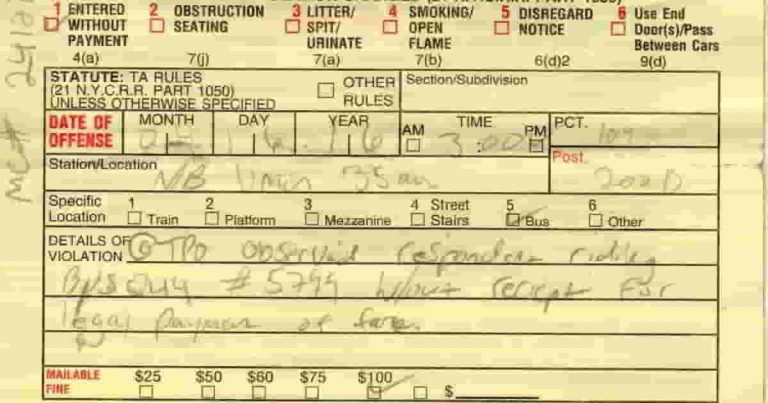 1 ENTERED WITHOUT PAYMENT 4(a)
2 OBSTRUCTION SEATING 7(j)
3 LITTER/ SPIT/ URINATE 7(a)
4 SMOKING/ OPEN FLAME 7(b)
5 DISREGARD NOTICE 6(d)2
6 Use End Door(s)/Pass Between Cars 9(d)
STATUTE: TA RULES
(21 N.Y.C.R.R. PART 1050)
UNLESS OTHERWISE SPECIFIED
OTHER RULES
Section/Subdivision
DATE OF OFFENSE
MONTH DAY YEAR
16 16
AM TIME PM
3:00
PCT.
109
Station/Location
N/B 35 av
Post
Specific Location
1 Train
2 Platform
3 Mezzanine
4 Street Stairs
5 Bus
6 Other
DETAILS OF VIOLATION
@ TPO observed respondent riding
Bus # 5799 w/out receipt for
legal payment of fare
MAILABLE FINE
$25 $50 $60 $75 $100 $